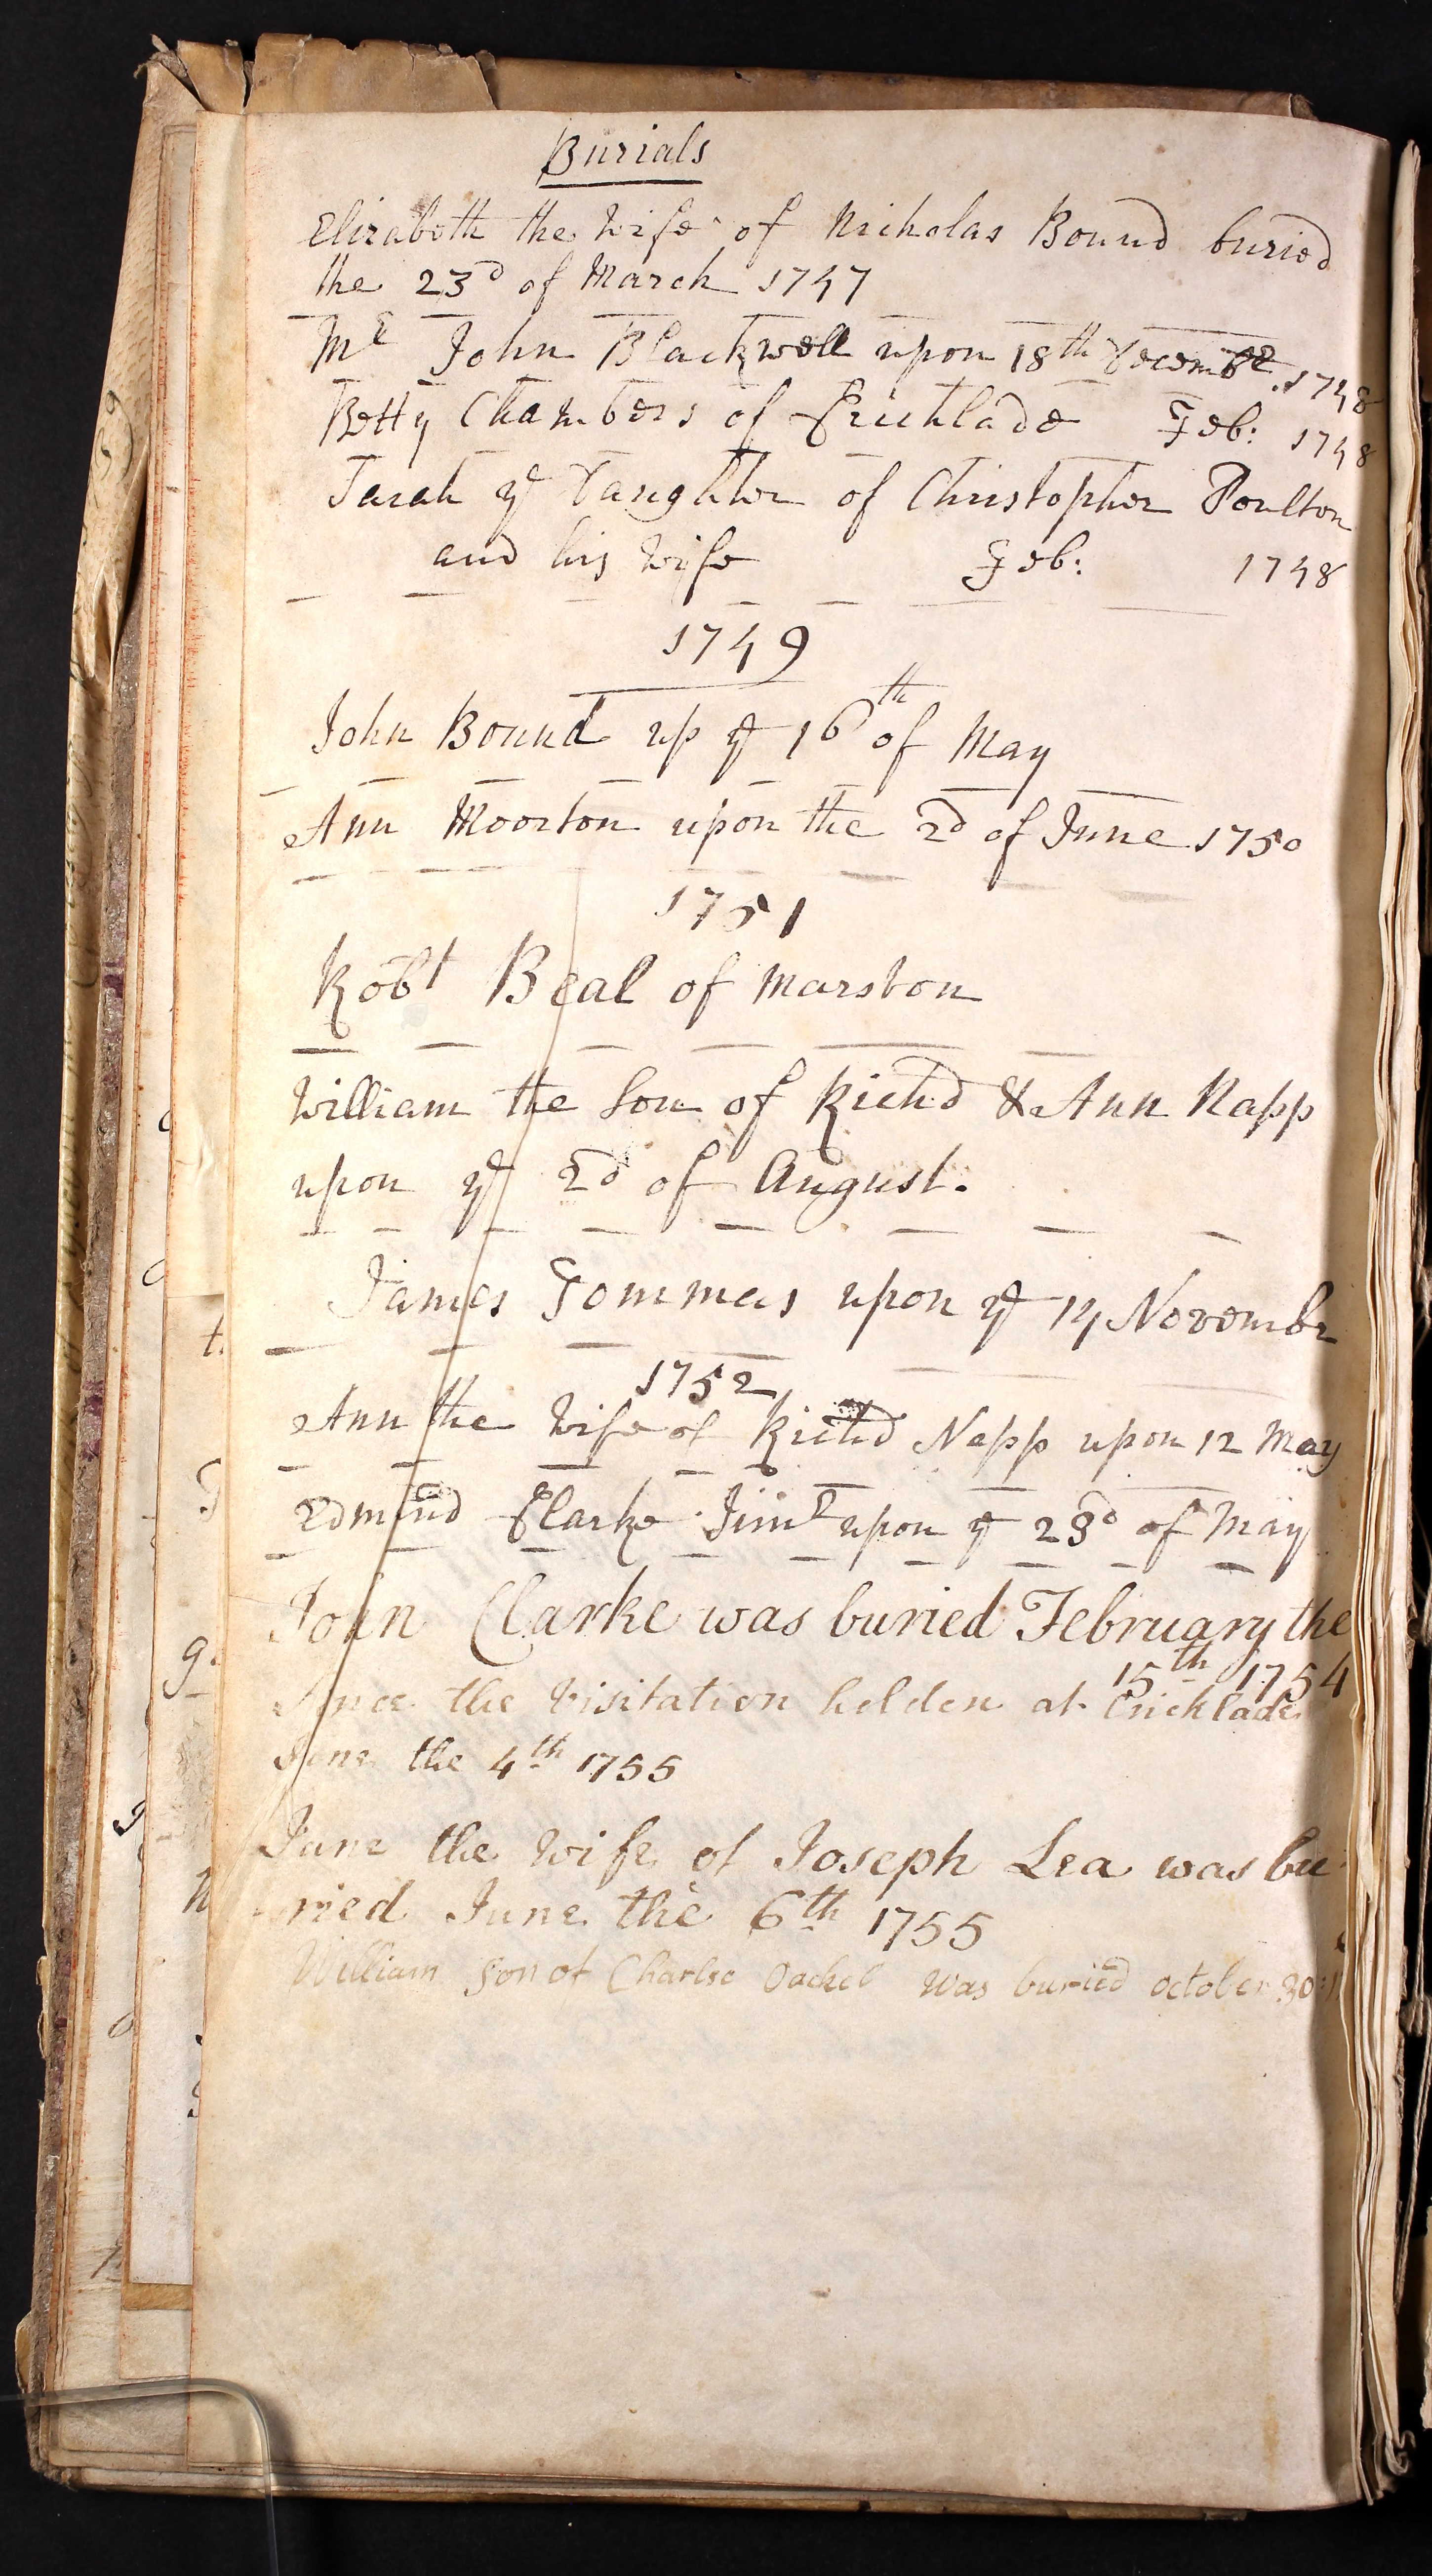 Burials
Elizabeth the Wife of Nicholas Bound buried
the 23d of March 1747
Mr John Blackwell upon 18th Decembr. 1748
Betty Chambers of Cricklade Feb: 1748
Sarah ye Daughter of Christopher Poulton
and his Wife Feb: 1748
1749
John Bound up ye 16th of May
Ann Moorton upon the 2d of June 1750
1751
Robt Beal of Marston
William the Son of Richd & Ann Napp
upon ye 2d of August.
James upon ye 14 Novembr
1752
Ann the Wife of Richd Napp upon 12 May
Edmund Clarke Junr upon ye 23d of May
John Clarke was buried February the
15th 1754
Since the Visitation holden at Cricklade
June the 4th 1755
Jane the Wife of Joseph Lea was bu
-ried June the 6th 1755
William Son of Charlse was buried october 30